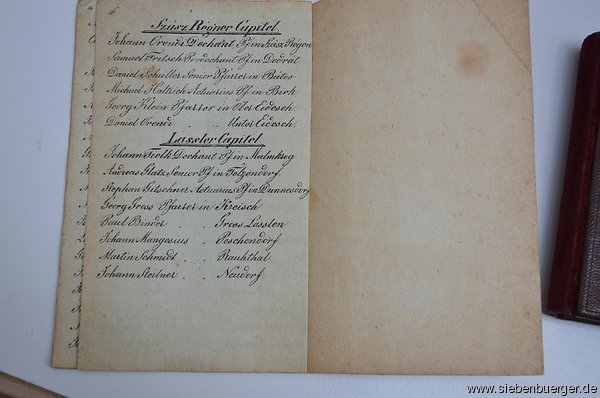 16.
Szász Regner Capitel.
Johann Orendi Dechant Pf in Szász Régen
Samuel Fritsch Prodechant Pf in Dedrát
Daniel Schuller Senior Pfarrer in Batos
Michael Haltrich Actuarius Pf. in Birk
Georg Klein Pfarrer in Ober Eidesch
Daniel Orendi . . . . Unter Eidesch.
Lassler Capitel.
Johann Fielk Dechant Pf in Malmkrog
Andreas Glatz Senior Pf in Felzendorf
Stephan Gitschner Actuarius Pf in Dunnesdorf
Georg Gross Pfarrer in Kreisch
Paul Binder . . Gross Lasslen
Johann Mangesius . Peschendorf
Martin Schmidt . . Rauhthal
Johann Steilner . . Neudorf
www.siebenbuerger.de